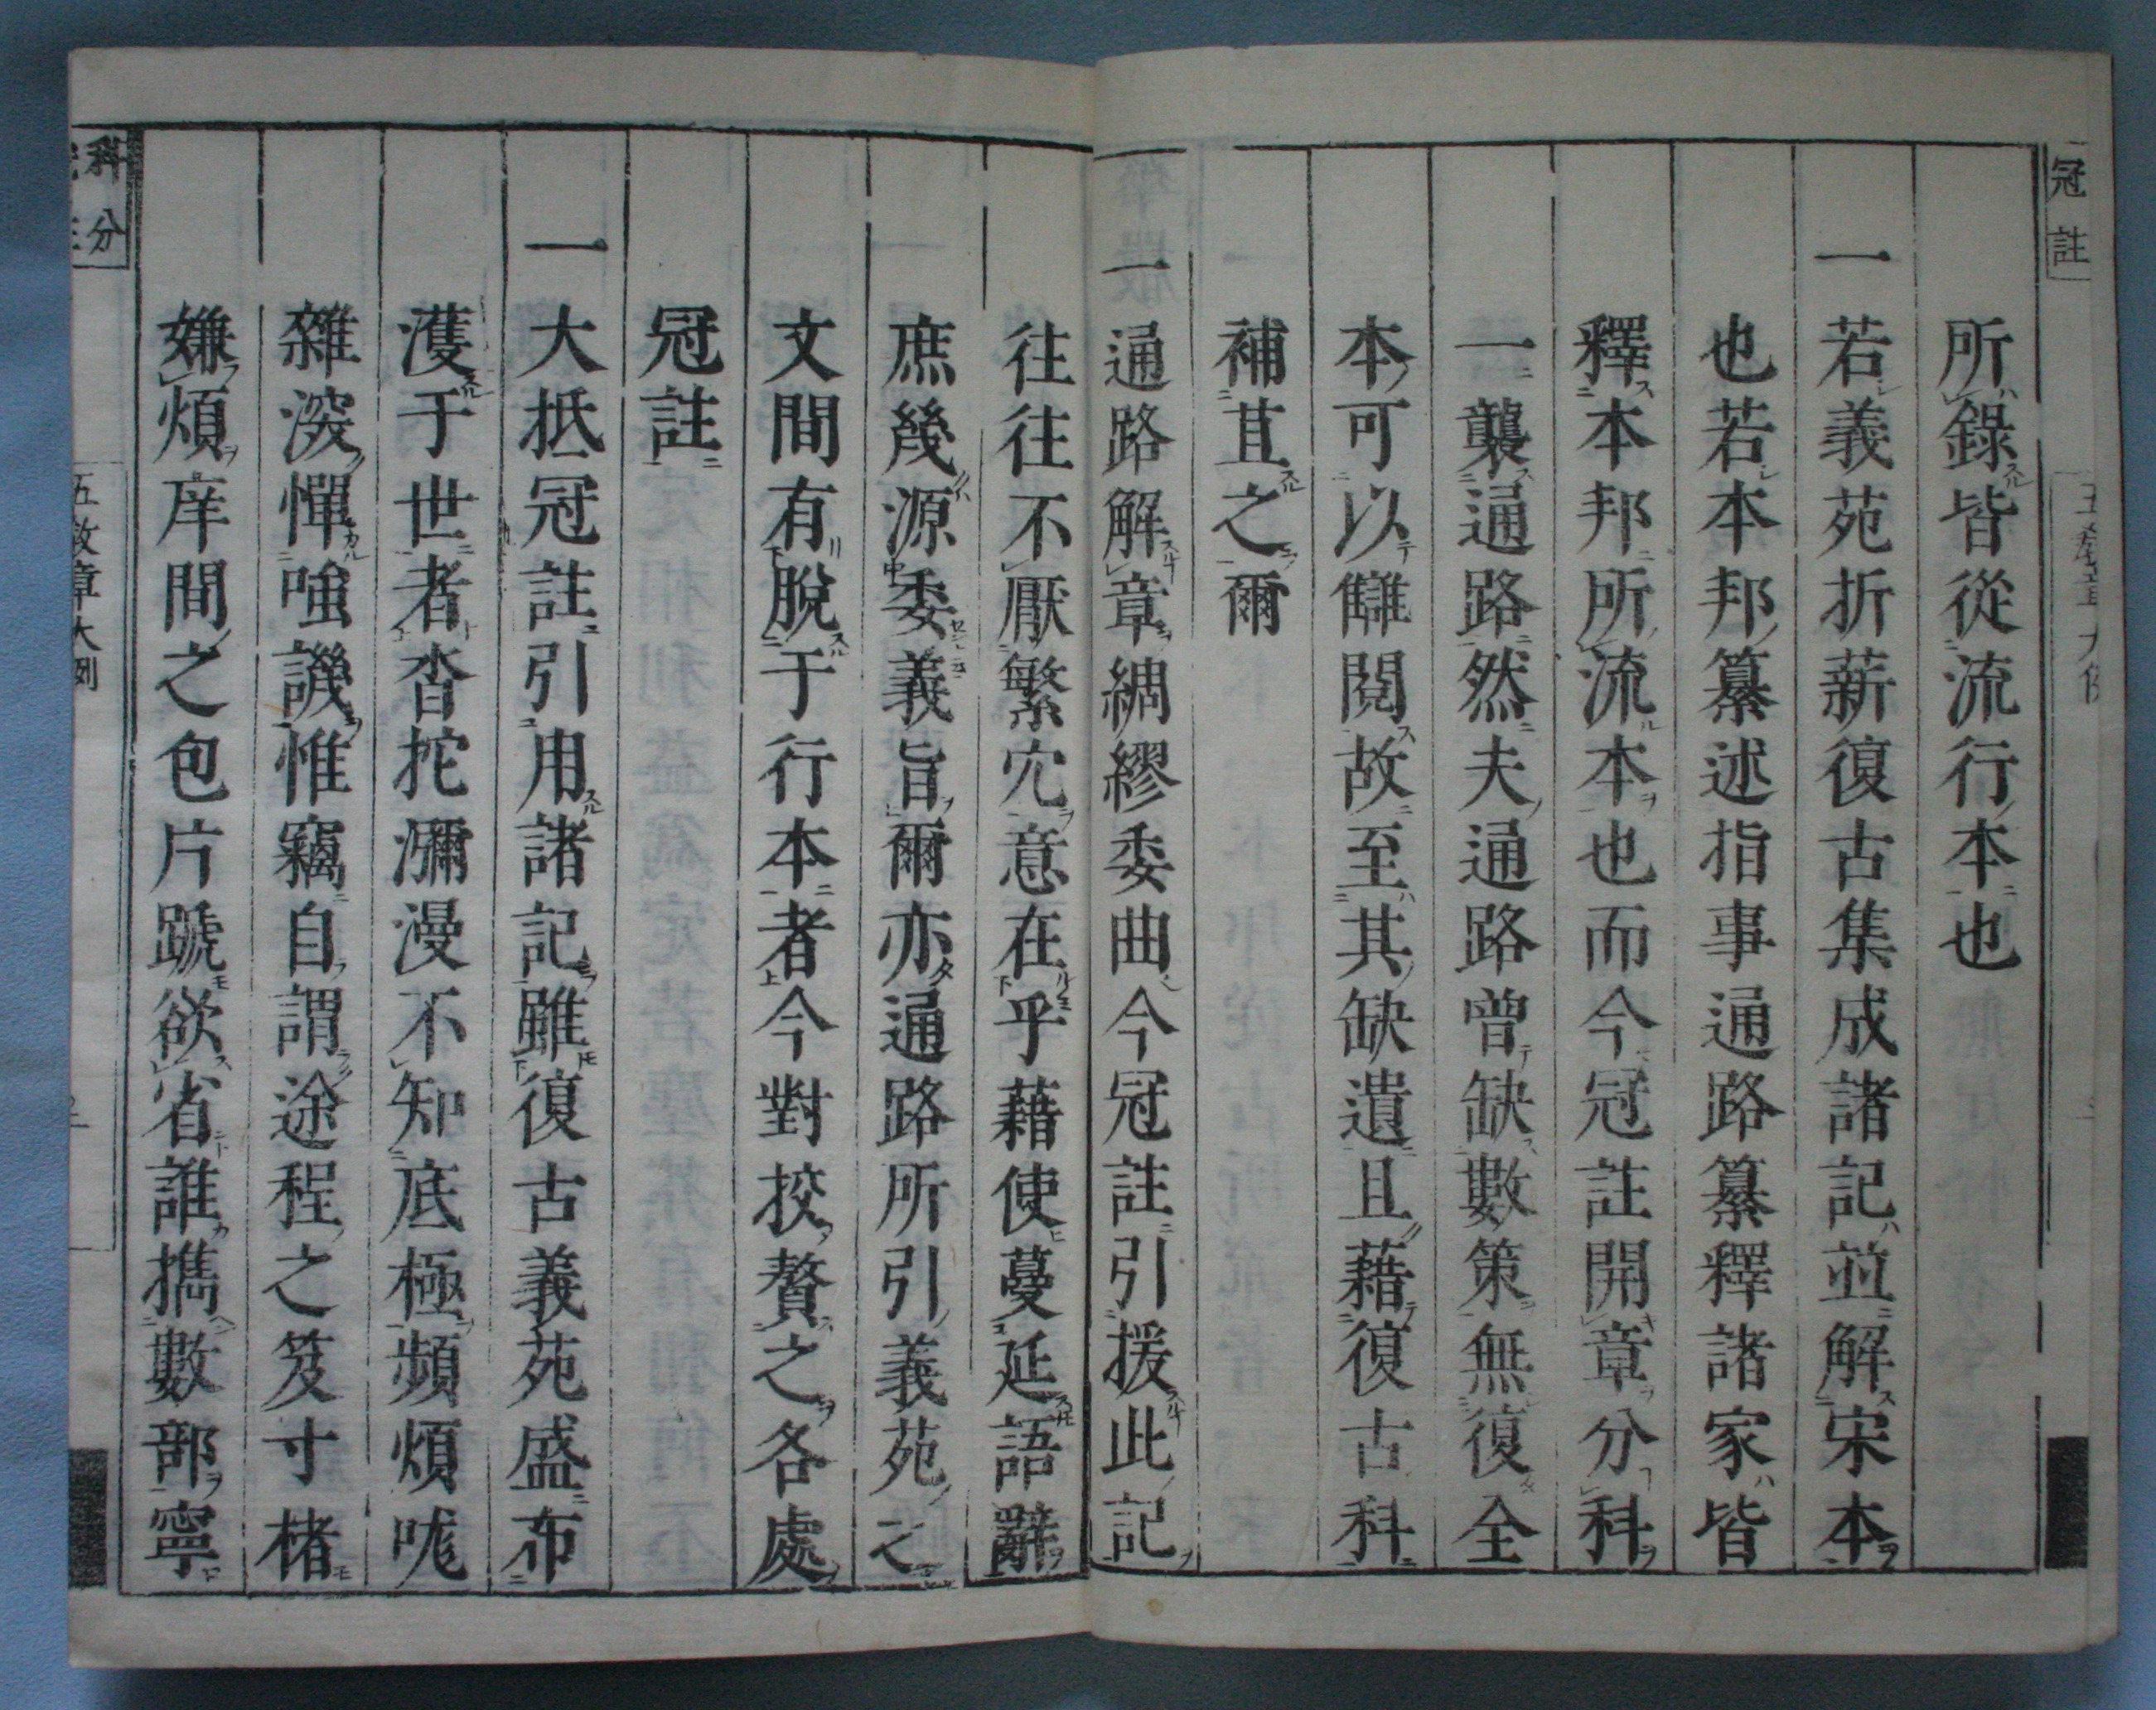 冠註
所錄皆從流行本也
一若義苑折薪復古集成諸記並解宋本
也若本邦纂述指事通路纂釋諸家皆
釋本邦所流本也而今冠註開章分科
一襲通路然夫通路曾缺數策無復全
本可以讎閱故至其缺遺且藉復古科
補苴之爾
一通路解章綢繆委曲今冠註引援此記
往往不厭繁冗意在乎藉使蔓延語辭
庶幾源委義旨爾亦通路所引義苑之
文間有脫于行本者今對挍贅之各處
冠註
一大抵冠註引用諸記雖復古義苑盛布
濩于世者沓挓瀰漫不知底極頻煩咙
雜深憚嗤譏惟竊自謂途程之笈寸楮
嫌煩庠間之包片蹏欲省誰擕數部寧
科分
五教章大例